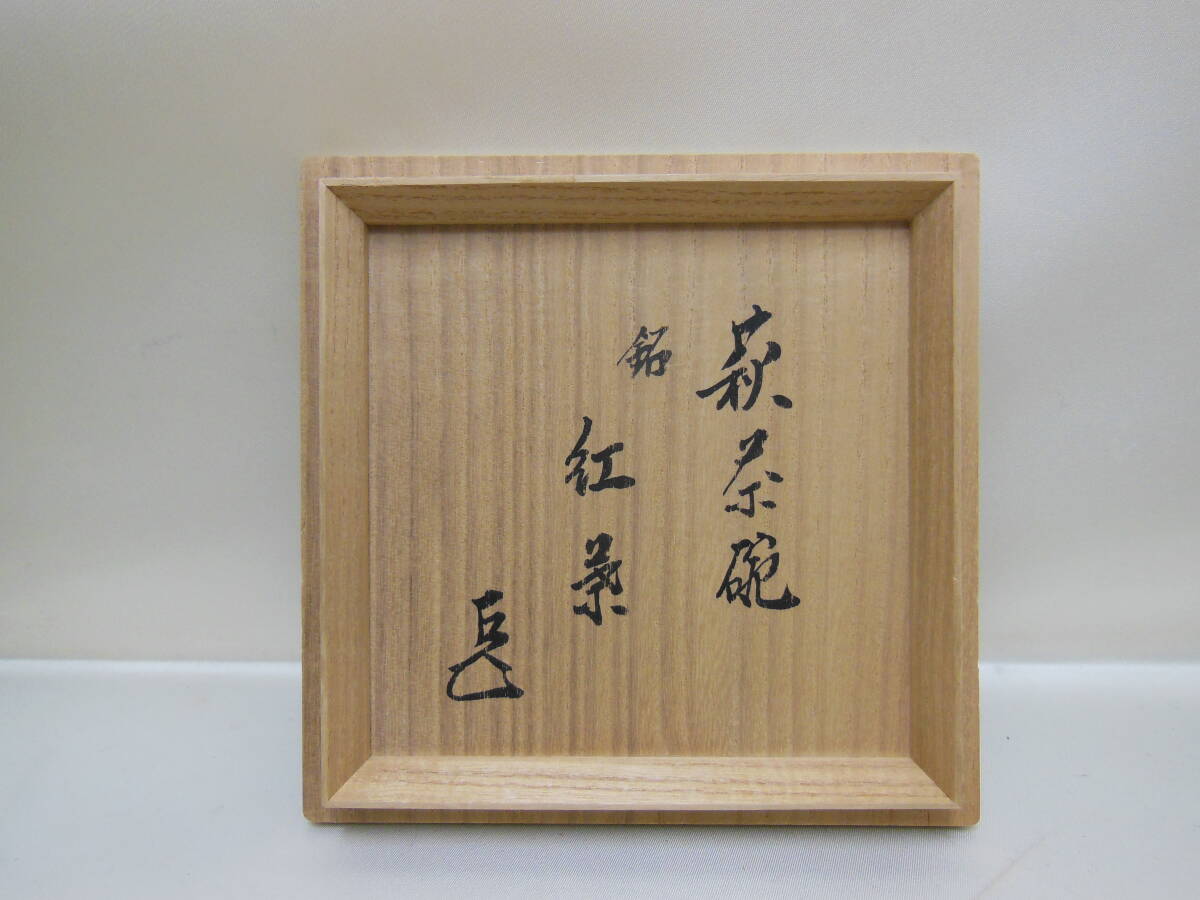 萩茶碗
銘
紅葉